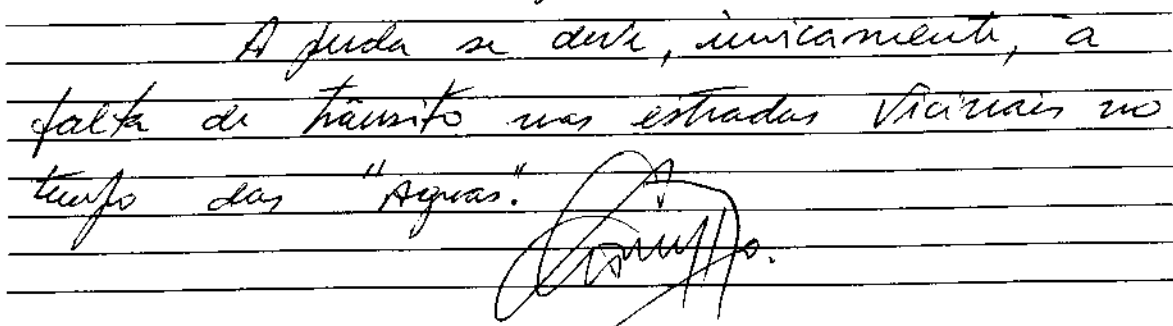 A perda se deve, unicamente, a
falta de trânsito nas estradas vicinais no
tempo das "Aguas."